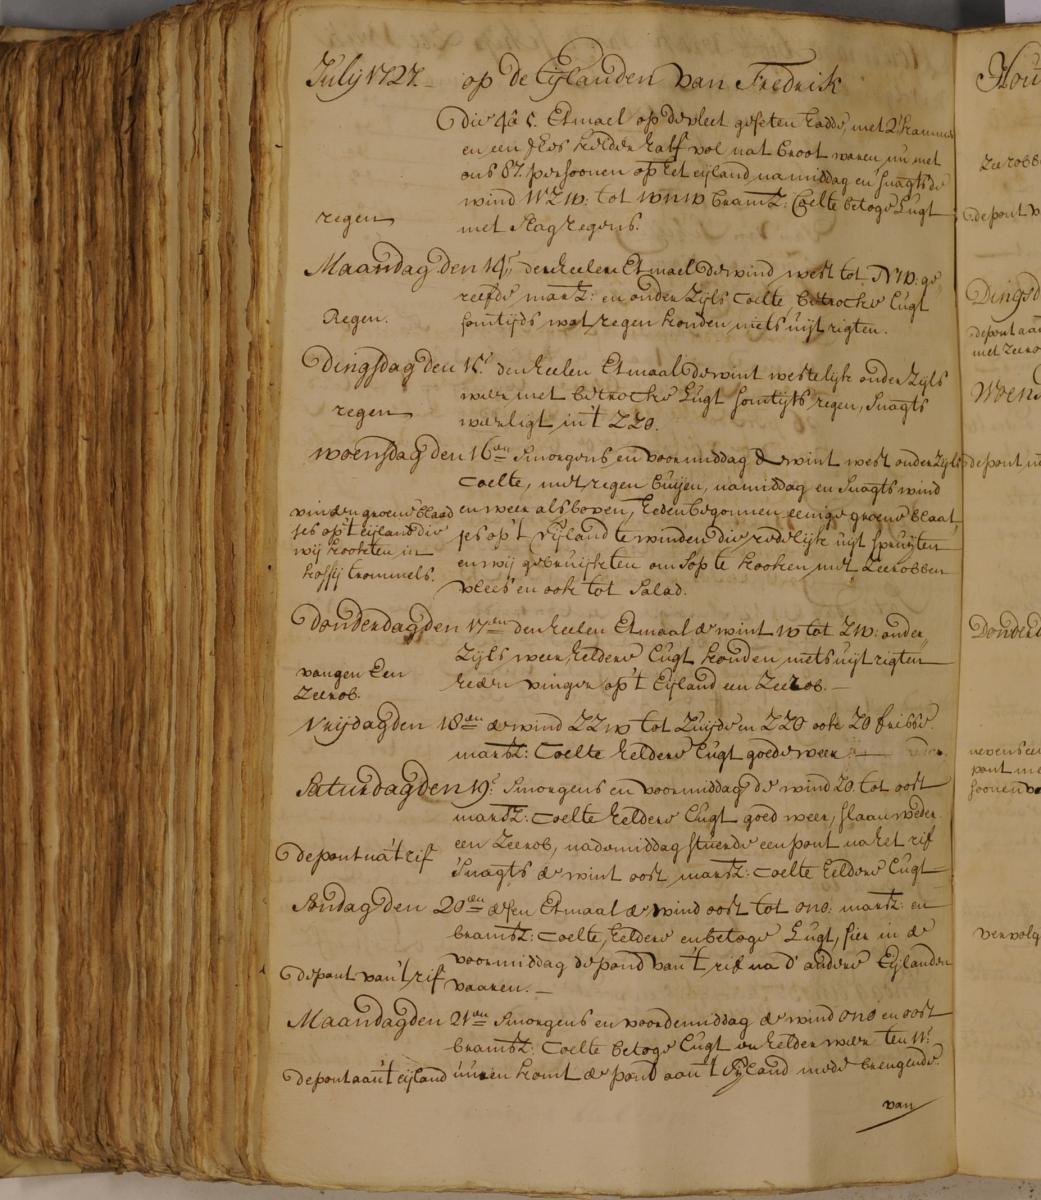 July 1727. op de Eijlanden van Fredrik
die 4 â 5. Etmael op de vleet geseten hadde, met 2 hammen
en een fles kelder half vol nat broot waren nu met
ons 87. persoonen op het eijland namiddag en snagts de
wind WZW: tot WNW bramz: Coelte betoge Lugt
regen
met slagregens.
Maandag den 14.' den heelen Etmael de wind west tot NW: ge
reefde marsz: en onder Zijls Coelte betrocke Lugt
Regen.
somtijds wat regen konden niets uijt rigten.
Dingsdag den 15.' den heelen Etmaal de wint westelijk onder Zijls
weer met betrocke Lugt somtijts regen, snagts
regen
weerligt in 't ZZO.
woensdag den 16den smorgens en voormiddag de wint west onder Zijls
Coelte, met regen buijen, namiddag en snagts wind
vinden groene blaad
en weer als boven, heden begonnen eenige groene blaat
jes op 't eijland die
jes op 't Eijland te vinden die redelijk uijt spruijten
wij kookten in
en wij gebruijkten om sop te kooken met Zeerobben
koffij trommels.
vlees en ook tot Salad.
Donderdag den 17den den heelen Etmaal de wint W tot ZW: onder
Zijls weer, heldere Lugt konden niets uijt rigten
vangen Een
heden vingen op 't Eijland een Zeerob.
Zeerob.
Vrijdag den 18den de wind ZZW tot Zuijd en ZZO ook ZO frisse
marsz: Coelte heldere Lugt goede weer.
Saturdag den 19.' smorgens en voormiddag de wind ZO. tot oost
marsz: Coelte heldere Lugt goed weer, slaan weder
een Zeerob, nademiddag stuerde een pont na het rif
de pont na 't rif
snagts de wint oost, marsz: Coelte heldere Lugt
Sondag den 20den desen Etmaal de wind oost tot ono: marsz: en
bramsz: Coelte, heldere en betoge Lugt, sien in de
voormiddag de pond van 't rif na d' andere Eijlanden
de pont van 't rif
vaaren.
Maandag den 21den smorgens en voordemiddag de wind ono en oost
bramsz: Coelte betoge Lugt en helder weer ten 11.
de pont aan 't eijland
uuren komt de pond aan 't Eijland mede brengende
van
Zeerobbe
de pont
Dingsd
de pont aan
met Zeero
Woens
de pont
Donderd
nevens
pont
soonen
vervolg